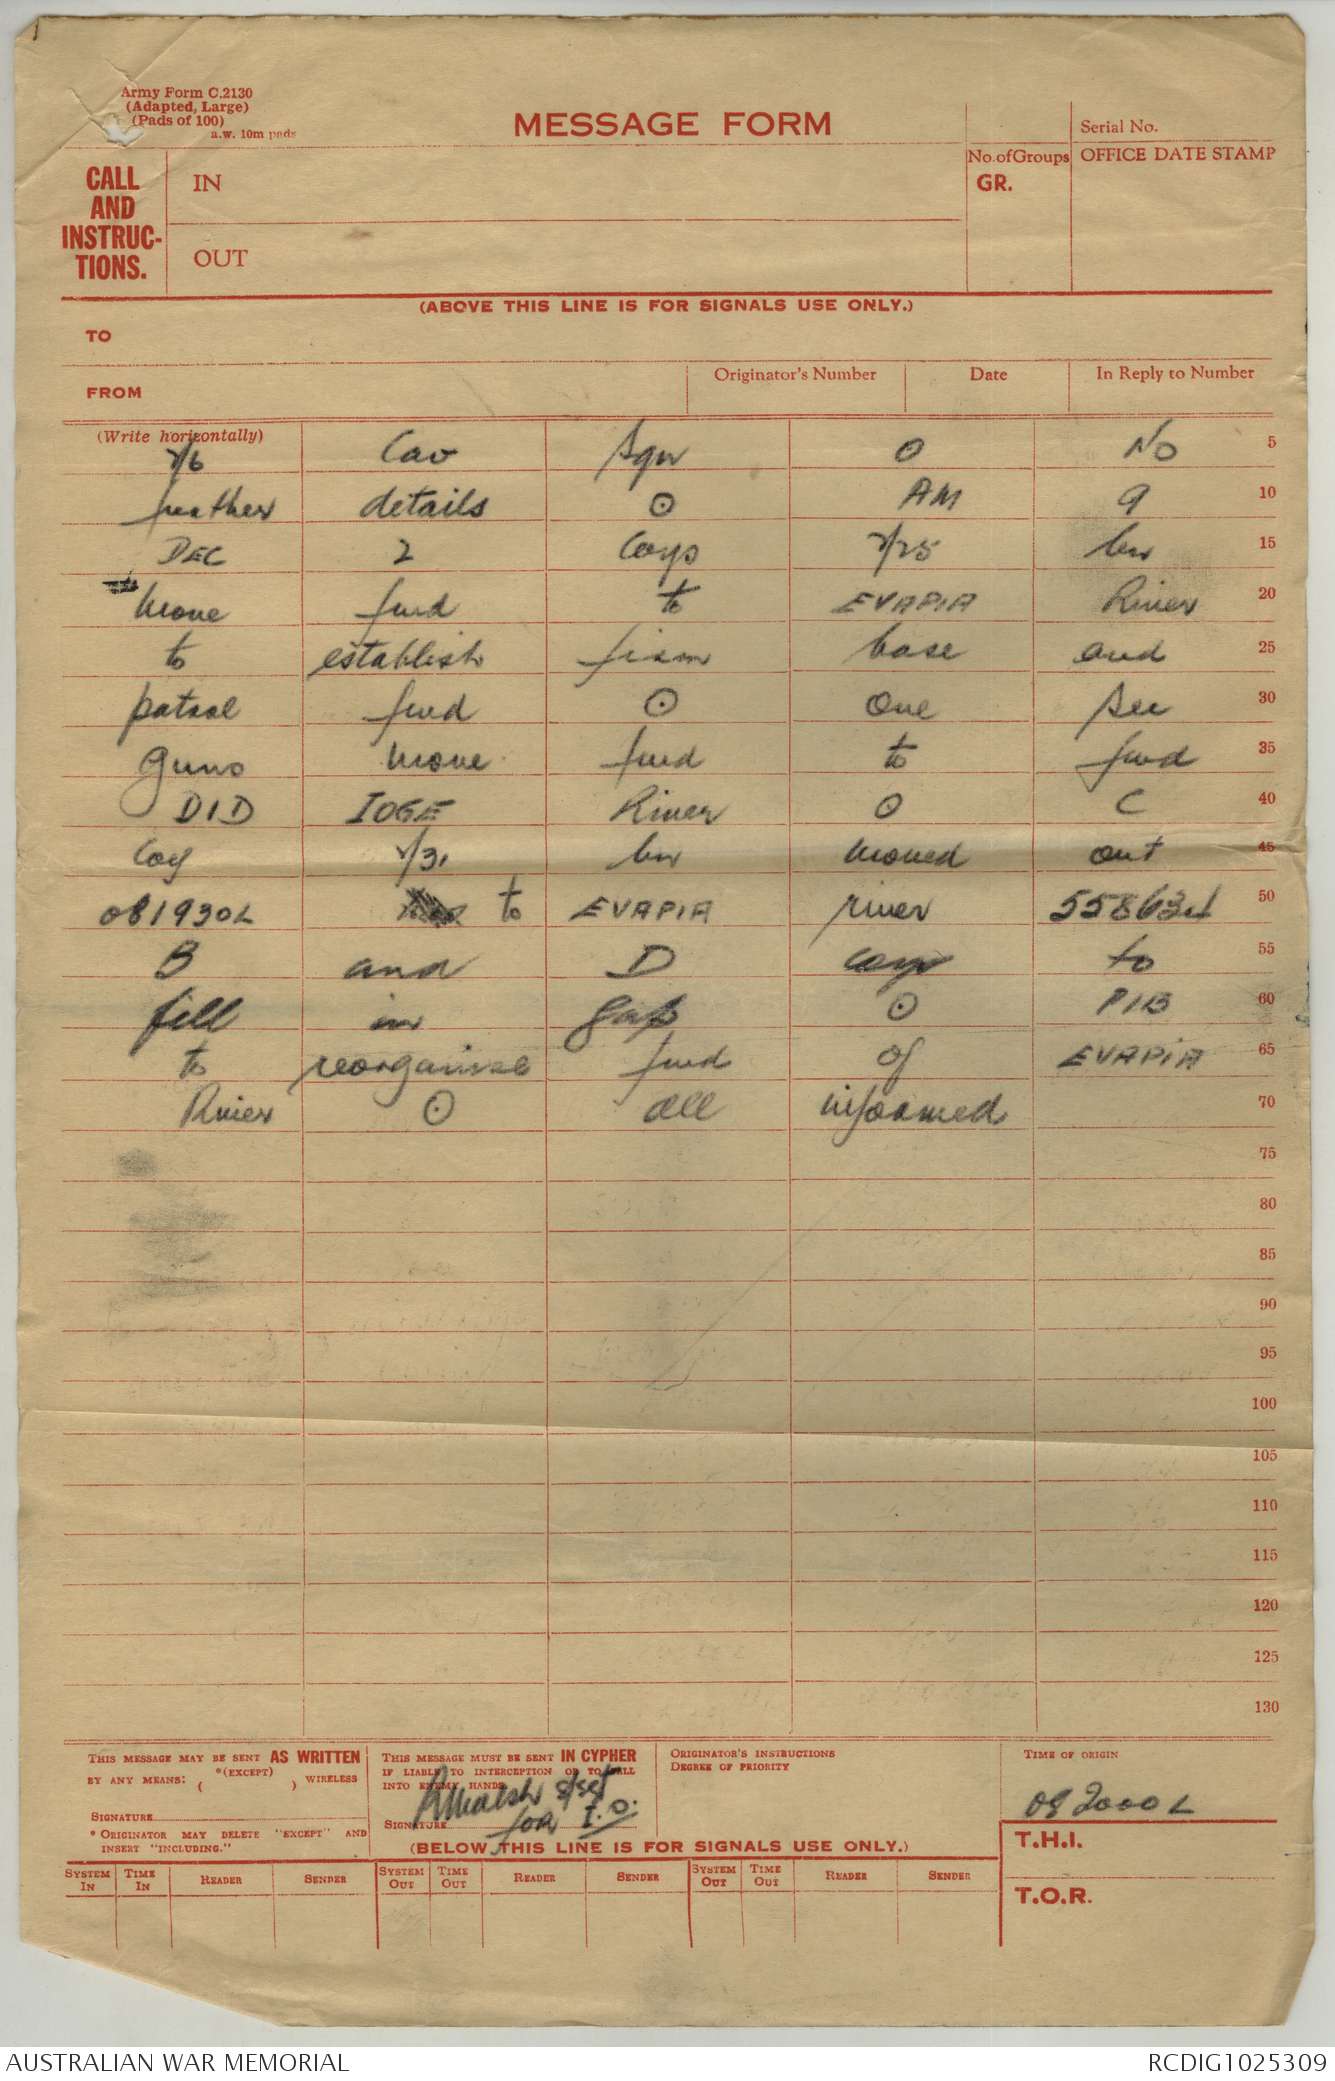 Army Form C.2130
(Adapted, Large)
(Pads of 100)
a.w. 10m pads
MESSAGE FORM
Serial No.
No. of Groups
GR.
OFFICE DATE STAMP
CALL
AND
INSTRUC-
TIONS.
IN
OUT
(ABOVE THIS LINE IS FOR SIGNALS USE ONLY.)
TO
FROM
Originator's Number Date In Reply to Number
(Write horizontally)
2/6 Cav Sqn O No 5
further details ⊙ AM 9 10
DEC 2 Coys 2/25 bn 15
move fwd to EVAPIA River 20
to establish firm base and 25
patrol fwd ⊙ One Sec 30
guns move fwd to fwd 35
DID IOGE River O C 40
Coy 2/31 bn moved out 45
081930L to EVAPIA river 558634 50
B and D coys to 55
fill in gap ⊙ PIB 60
to reorganise fwd of EVAPIA 65
River ⊙ all informed 70
75
80
85
90
95
100
105
110
115
120
125
130
THIS MESSAGE MAY BE SENT AS WRITTEN
BY ANY MEANS: *(EXCEPT) ( ) WIRELESS
SIGNATURE
* ORIGINATOR MAY DELETE "EXCEPT" AND
INSERT "INCLUDING."
THIS MESSAGE MUST BE SENT IN CYPHER
IF LIABLE TO INTERCEPTION OR TO FALL
INTO ENEMY HANDS
SIGNATURE
RWalsh S/Sgt
for I.O.
ORIGINATOR'S INSTRUCTIONS
DEGREE OF PRIORITY
TIME OF ORIGIN
082000L
(BELOW THIS LINE IS FOR SIGNALS USE ONLY.)
T.H.I.
T.O.R.
SYSTEM IN TIME IN READER SENDER SYSTEM OUT TIME OUT READER SENDER SYSTEM OUT TIME OUT READER SENDER
AUSTRALIAN WAR MEMORIAL RCDIG1025309